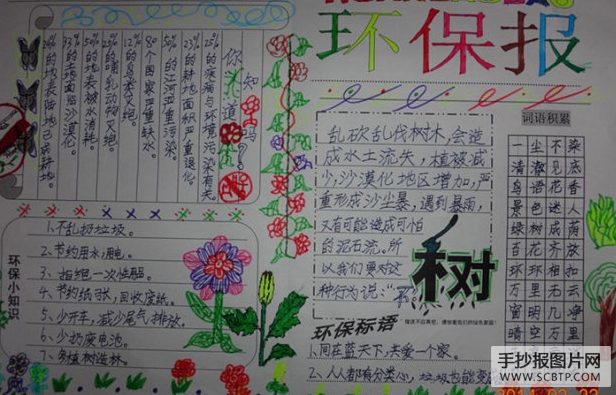 环保报
你知道吗?
25%的疾病与环境污染有关。
23%的耕地面积严重退化。
50%的江河严重污染。
80个国家严重缺水。
12%的鸟类灭绝。
25%的哺乳动物灭绝。
50%的地表被水消耗。
33%的土地面临沙漠化。
的地表陆地已成耕地。
环保小知识
1、不乱扔垃圾。
2、节约用水,用电。
3、拒绝一次性
4、节约纸张,回收废纸。
5、少开车,减少尾气排放。
6、少扔废电池。
7、多植树造林。
乱砍乱伐树木,会造
成水土流失,植被减
少,沙漠化地区增加,严
重形成沙尘暴,遇到暴雨,
又有可能造成可怕
的泥石流。所
以我们要对这
种行为说:“不。”
树
环保标语
1、同在蓝天下,共爱一个家。
2、人人都有分类心,垃圾也能变
词语积累
一尘不染
清澈见底
鸟语花香
景色迷人
绿树成荫
百花齐放
环环相扣
万里无云
窗明几净
晴空万里
手抄报图片网
WWW.SCBTP.COM